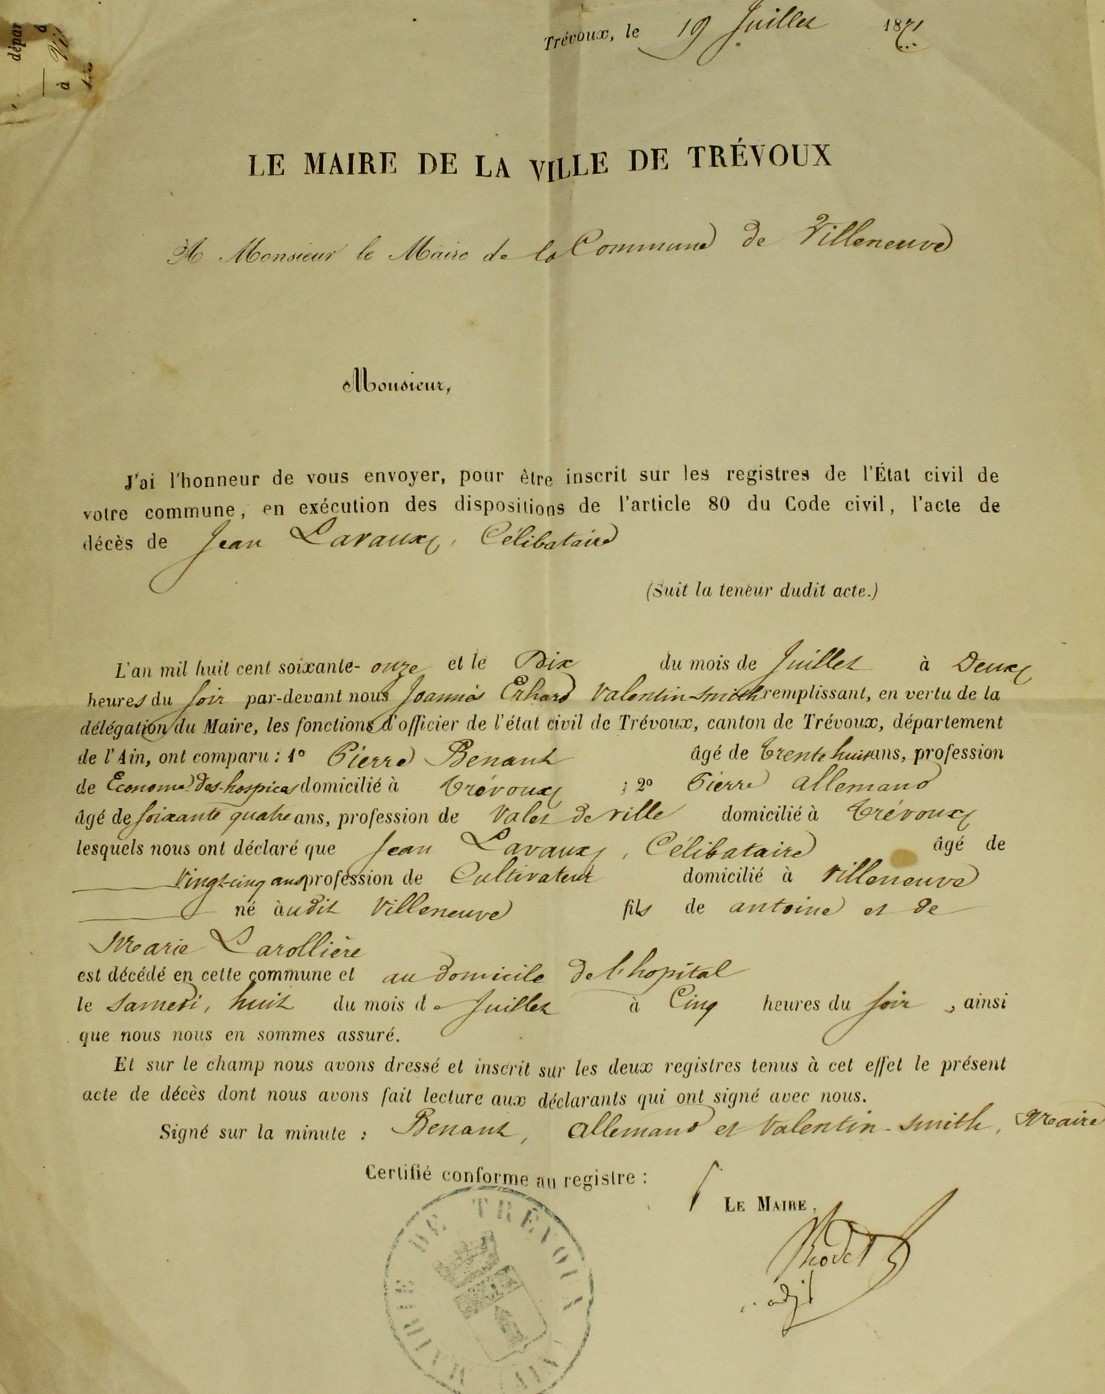 Trévoux, le 19 Juillet 1871
LE MAIRE DE LA VILLE DE TRÉVOUX
A Monsieur le Maire de la Commune de Villeneuve
Monsieur,
J'ai l'honneur de vous envoyer, pour être inscrit sur les registres de l'État civil de
votre commune, en exécution des dispositions de l'article 80 du Code civil, l'acte de
décès de Jean Lavaux, Célibataire
(Suit la teneur dudit acte.)
L'an mil huit cent soixante-onze et le Dix du mois de Juillet à Deux
heures du soir par-devant nous Joannès Erhard Valentin-Smith remplissant, en vertu de la
délégation du Maire, les fonctions d'officier de l'état civil de Trévoux, canton de Trévoux, département
de l'Ain, ont comparu : 1º Pierre Benant âgé de trente huit ans, profession
de Econome des hospices domicilié à Trévoux ; 2º Pierre allemand
âgé de soixante quatre ans, profession de Valet de ville domicilié à Trévoux
lesquels nous ont déclaré que Jean Lavaux, Célibataire âgé de
Vingt-cinq ans profession de Cultivateur domicilié à Villeneuve
né àudit Villeneuve fils de antoine et de
Marie Larollière
est décédé en cette commune et au domicile de l'hopital
le samedi, huit du mois de Juillet à Cinq heures du soir, ainsi
que nous nous en sommes assuré.
Et sur le champ nous avons dressé et inscrit sur les deux registres tenus à cet effet le présent
acte de décès dont nous avons fait lecture aux déclarants qui ont signé avec nous.
Signé sur la minute : Benant, allemand et Valentin-Smith, Maire
Certifié conforme au registre :
LE MAIRE,
adjt
MAIRIE DE TRÉVOUX (AIN)